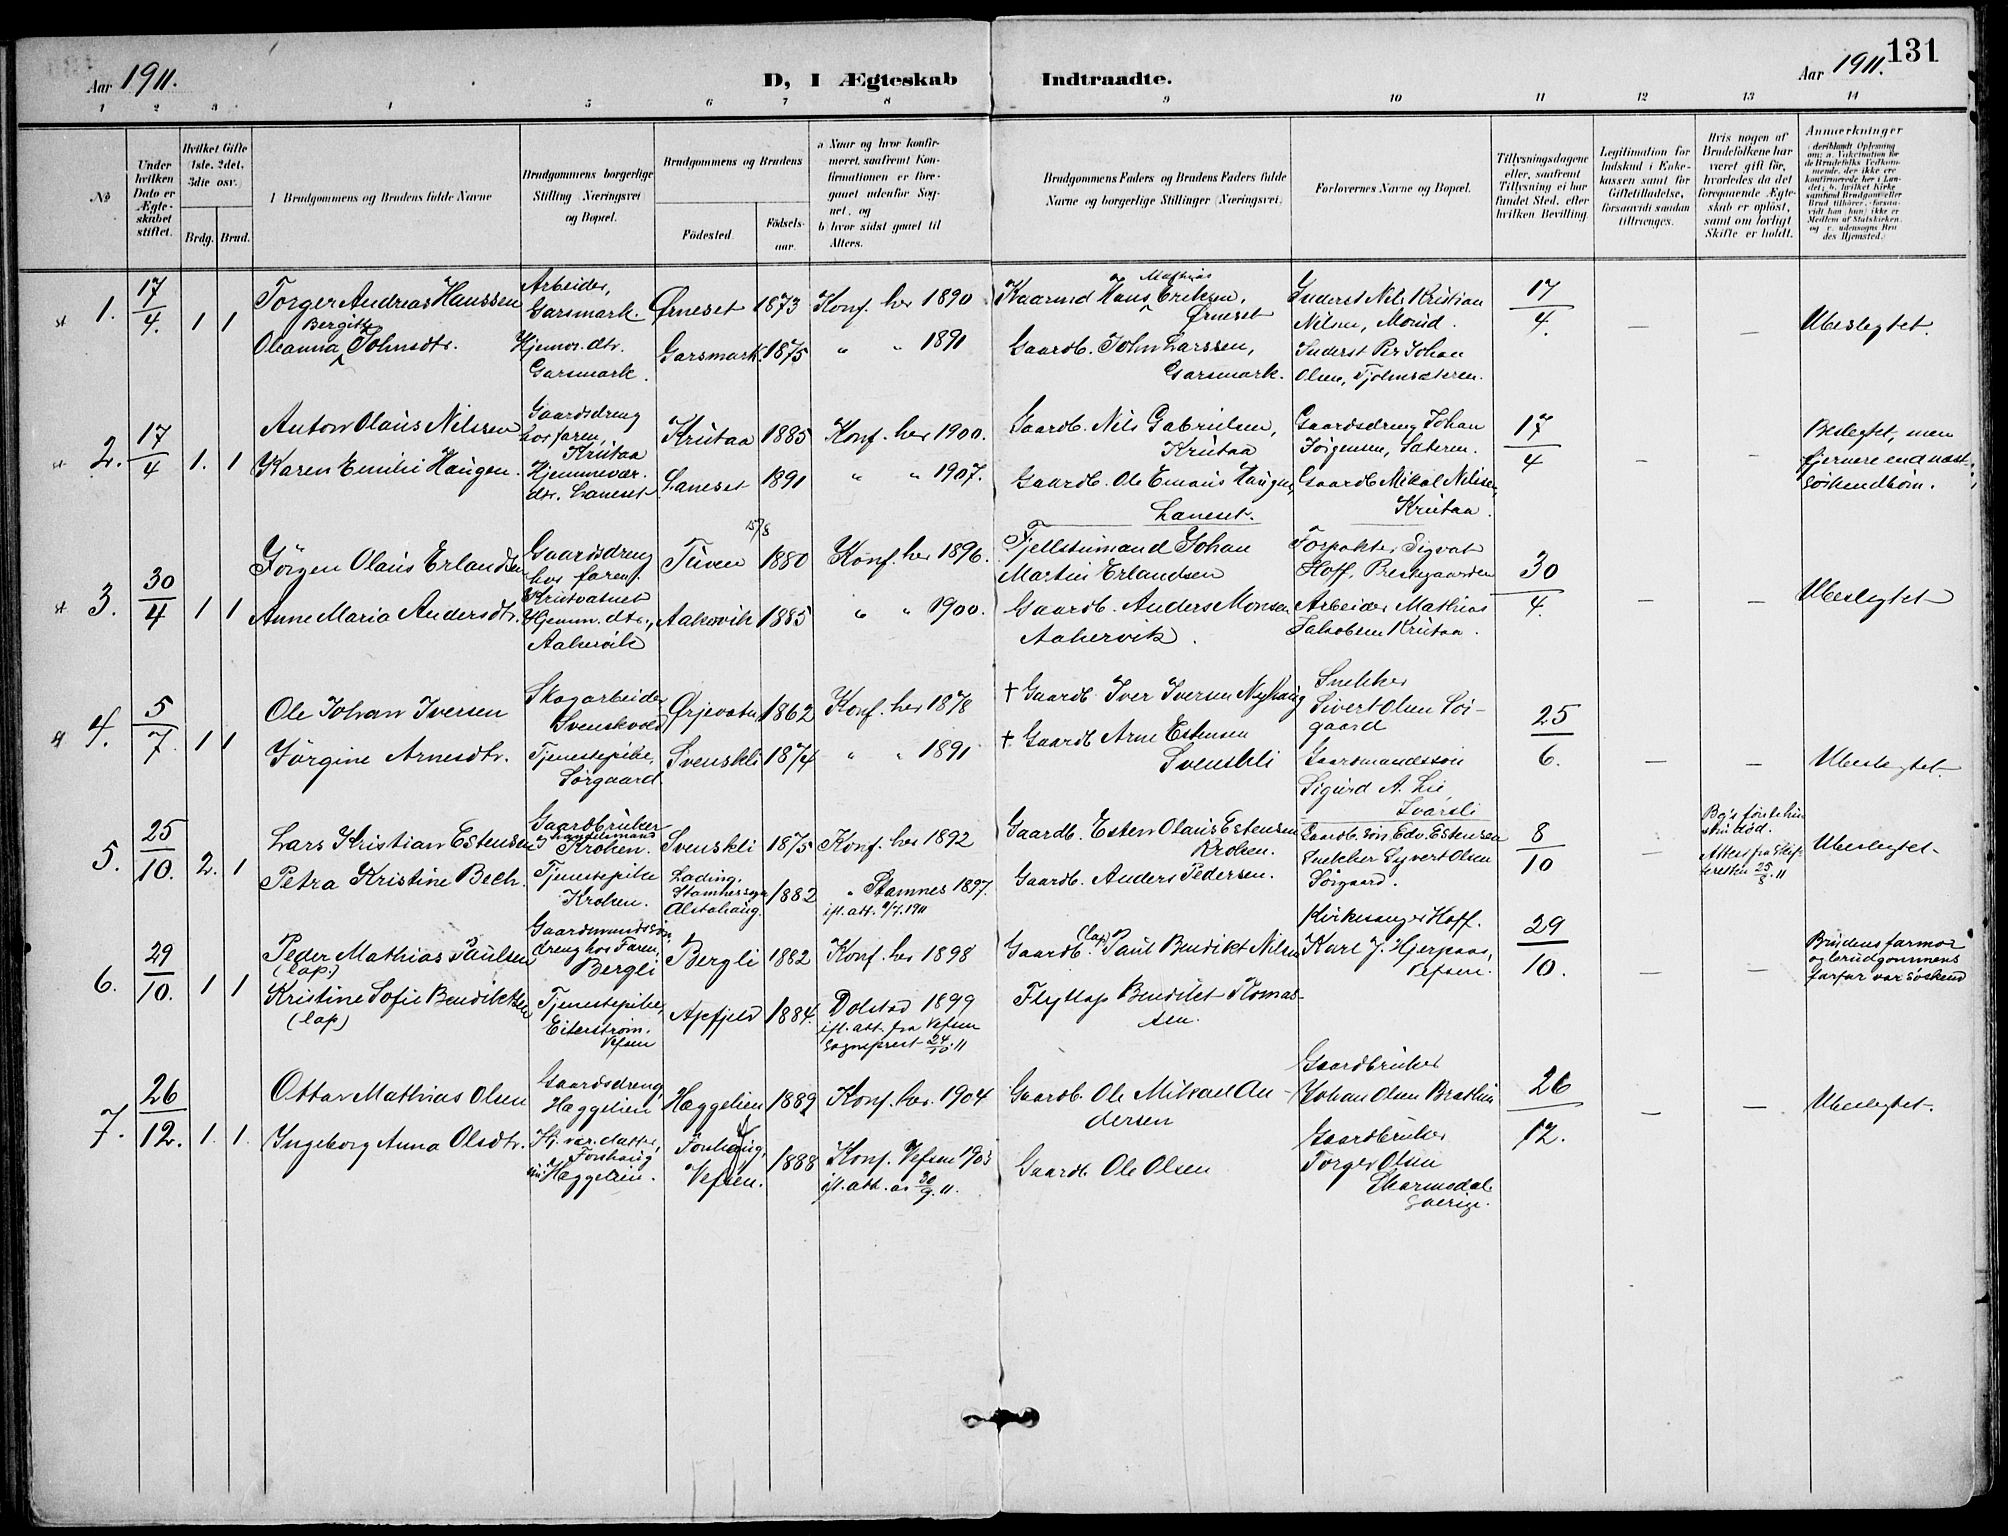 Aar 1911.
D, I Ægteskab Indtraadte.
Aar 1911.
131
1 2 3 4 5 6 7 8 9 10 11 12 13 14
No
Under hvilken Dato er Ægteskabet stiftet.
Hvilket Gifte (1ste, 2det, 3die osv.)
Brdg. Brud.
Brudgommens og Brudens fulde Navne
Brudgommens borgerlige Stilling (Næringsvei) og Bopæl.
Brudgommens og Brudens
Fødested.
Fødselsaar.
a) Naar og hvor konfirmeret, saafremt Konfirmationen er foregaaet udenfor Sognet, og
b) hvor sidst gaaet til Alters.
Brudgommens Faders og Brudens Faders fulde Navne og borgerlige Stillinger (Næringsvei)
Forlovernes Navne og Bopæl.
Tillysningsdagene eller, saafremt Tillysning ei har fundet Sted, efter hvilken Bevilling.
Legitimation for Indskud i Enkekassen samt for Giftetilladelse, forsaavidt saadan tiltrænges.
Hvis nogen af Brudefolkene har været gift før, hvorledes da det foregaaende Ægteskab er opløst, samt om lovligt Skifte er holdt.
Anmærkninger
st 1. 17/4. 1 1
Torger Andreas Hanssen
Bergitte
Oleanna Johnsdtr.
Arbeider,
Garsmark.
Hjemv. dtr.
Garsmark.
Ørneset 1873 Konf. her 1890
Garsmark. 1875 " " 1891
Mathias
Kaarmd Hans Eriksen,
Ørneset
Gaardb. John Larssen,
Garsmark.
Inderst Nils Kristian
Nilsen, Monid.
Inderst Per Johan
Olsen, Tjolmsæteren.
17/4.
— —
Ubeslegtet.
st 2. 17/4 1. 1
Anton Olaus Nilssen
Karen Emilie Haugen.
Gaardsdreng
hos faren,
Krutaa
Hjemmevær.
dtr. Laneset
Krutaa 1885 Konf. her 1900.
Laneset 1891 " " 1907.
Gaardb. Nils Gabrielsen,
Krutaa
Gaardb. Ole Emaus Haugen,
Laneset.
Gaardsdreng Johan
Jørgensen, Sæteren.
Gaardb Mikal Nilssen,
Krutaa.
17/4
— —
Beslegtet, men
fjernere end næst-
søskendbørn.
st 3. 30/4 1 1
Jørgen Olaus Erlandsen
Anne Maria Andersdtr.
Gaardsdreng
hos faren,
Krutvatnet
Hjemm. dtr.,
Aakervik
15/8
Tuven 1880 Konf. her 1896.
Aakervik 1885 " " 1900.
Fjellstumand Johan
Martin Erlandsen
Gaardb. Anders Monsen
Aakervik.
Forpakter Sigvat
Hoff, Prestgaarden
Arbeider Mathias
Jakobsen Krutaa.
30/4.
— —
Ubeslegtet
st 4. 5/7. 1 1
Ole Johan Iversen
Jørgine Arnesdtr.
Skogarbeider
Svenskvold
Tjenestepike,
Sørgaard.
Ørjevatn 1862 Konf. her 1878
Svenskli 1874 " " 1891
† Gaardb. Iver Iversen Nyhaug
† Gaardb Arne Estensen
Svenskli
Snekker
Sivert Olsen Sør-
gaard
Gaardmandssøn
Sigurd A. Lie,
Ivarsli
25/6.
— —
Ubeslegtet.
5. 25/10. 2. 1
Lars Kristian Estensen
Petra Kristine Bech.
Gaardbruker
og handelsmand
Kroken.
Tjenestepike
Kroken.
Svenskli 1875 Konf. her 1892
Lading,
Stamnes sogn
Alstahaug. 1882 " Stamnes 1897.
Gaardb. Esten Olaus Estensen
Kroken.
Gaardb. Anders Pedersen.
Gaardb. søn Edv. Estensen
Snekker Syvert Olsen
Sørgaard.
8/10
—
Bg's første hu-
stru død.
Attest fra Skif-
teretten 25/8. 11
Ubeslegtet.
6. 29/10. 1 1
Peder Mathias Paulsen
(lap.)
Kristine Sofie Bendiktsen
(lap)
Gaardmandssøn
dreng hos Faren,
Bergli
Tjenestepike,
Eiterstrøm.
Vefsen
Bergli 1882 Konf. her 1898
Apfjeld 1884. Dolstad 1899
ifl. att. fra Vefsen
Sogneprest 24/10. 11
(lap)
Gaardb. Paul Bendikt Nilsen
Flytlap Bendikt Tomas-
sen.
Kirkesanger Hoff.
Karl J. Hjerpaas,
Vefsen.
29/10.
— —
Brudens farmor
og brudgommens
farfar var søskend
7. 26/12. 1. 1.
Ottar Mathias Olsen
Ingeborg Anna Olsdtr.
Gaardsdreng,
Hæggelien
Hj. vær. datter,
Fonhaug
Hæggelien.
Hæggelien 1889 Konf. her. 1904
Fonhaug,
Vefsen. 1888 Konf. Vefsen 1903
ifl. att. av 30/9. 11.
Gaardb. Ole Mikael An-
dersen
Gaardb. Ole Olsen
Gaardbruker
Johan Olsen Bratlien
Gaardbruker
Torger Olsen
Skarmodal
Sverige.
26/12.
— —
Ubeslegtet.